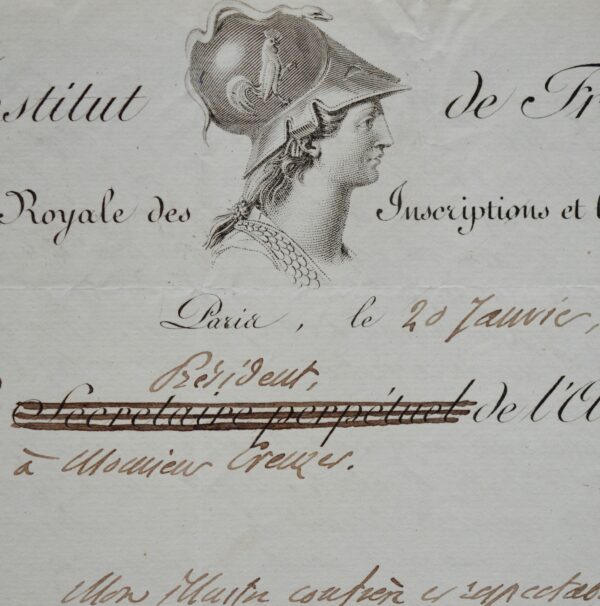 nstitut de Fr
Royale des Inscriptions et
Paris, le 20 Janvier,
Président,
Secrétaire perpétuel de l'A
à Monsieur Creuzer.
Mon illustre confrère et respectab